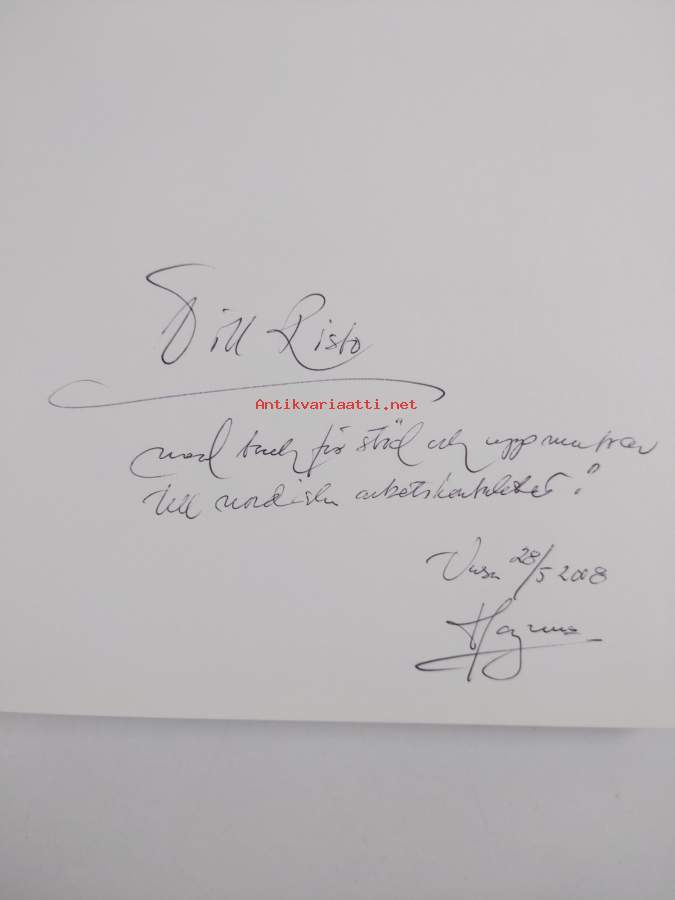 Till Risto
Antikvariaatti.net
med tack för stöd och uppmuntran
till nordiska arbetskontakter!
Vasa 28/5 2008